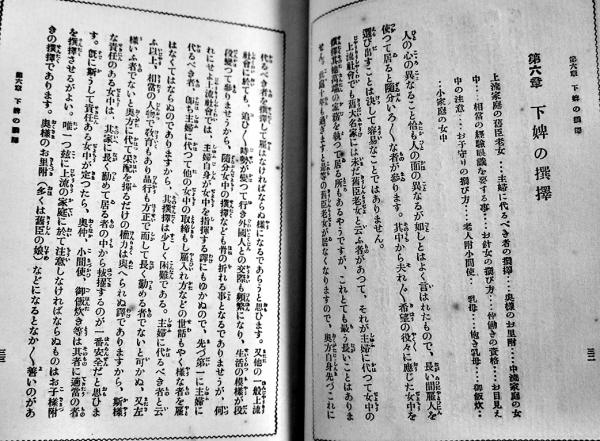 第六章 下婢の撰擇
第六章 下婢の撰擇
上流家庭の舊臣老女‥‥主婦に代るべき者の撰擇‥‥奥様のお里附‥‥中流家庭の女
中‥‥相當の經驗識を要する事‥‥お針女の撰び方‥‥仲働きの資格‥‥お目見え
中の注意‥‥お子守りの撰び方‥‥老人附小間使‥‥乳母‥‥抱き乳母‥‥御飯炊‥‥
‥小家庭の女中
人の心の異なること恰も人の面の異なるが如しとはよく言はれたもので、長い間雇人を
使つて居ると隨分いろ〱な者があります。其中から夫れ〱希望の役々に應じた女中を
選び出すことは決して容易なことではありません。
上流社會でも舊大名家には未だ舊臣老女と云ふ者があつて、それが主婦に代つて女中の
撰擇其他萬端の家務を執つて居る所もあるやうですが、これとても最う長いことはありま
せん。
代るべき者を撰擇して雇はなければならぬ様になるであらうと思ひます。又他の一般上流
社會に於ても、追ひ〱時勢が變つて行き外國人との交際も頻繁になり、生活の模様が段
段變つて參りませうから、
れにせよ上流社會では、主婦自身が女中を指揮する譯にもゆかぬので、先づ第一に主婦に
代るべき者、卽ち主婦に代つて他の女中の取締もし雇入れ方などの世話もやく様な者を雇
はなくてはならぬのでありますから、其撰擇は少しく困難である。主婦に代るべき者と云
ふ以上、相當の人物で教育もあり品行も方正で而して長く勤める者でないと行かぬ、又左
様いふ者でないと奥方に代つて釆配を揮るだけの權力は與へられぬ譯でありますから、斯様
な責任のある女中は、其家に長く勤めて居る者の中から抜擢するのが一番安全だと思ひま
す。既に斯うして責任ある女中が定つたなら、奥仲、小間使、御飯炊き等は其者に適當の者
を撰擇させるがよい。唯一つ玆に上流の家庭に於て注意しなければならぬものはお子様附
きの撰擇であります。奥様のお里附（多くは舊臣の娘）などになるとなか〱善いのがあ
第六章 下婢の撰擇